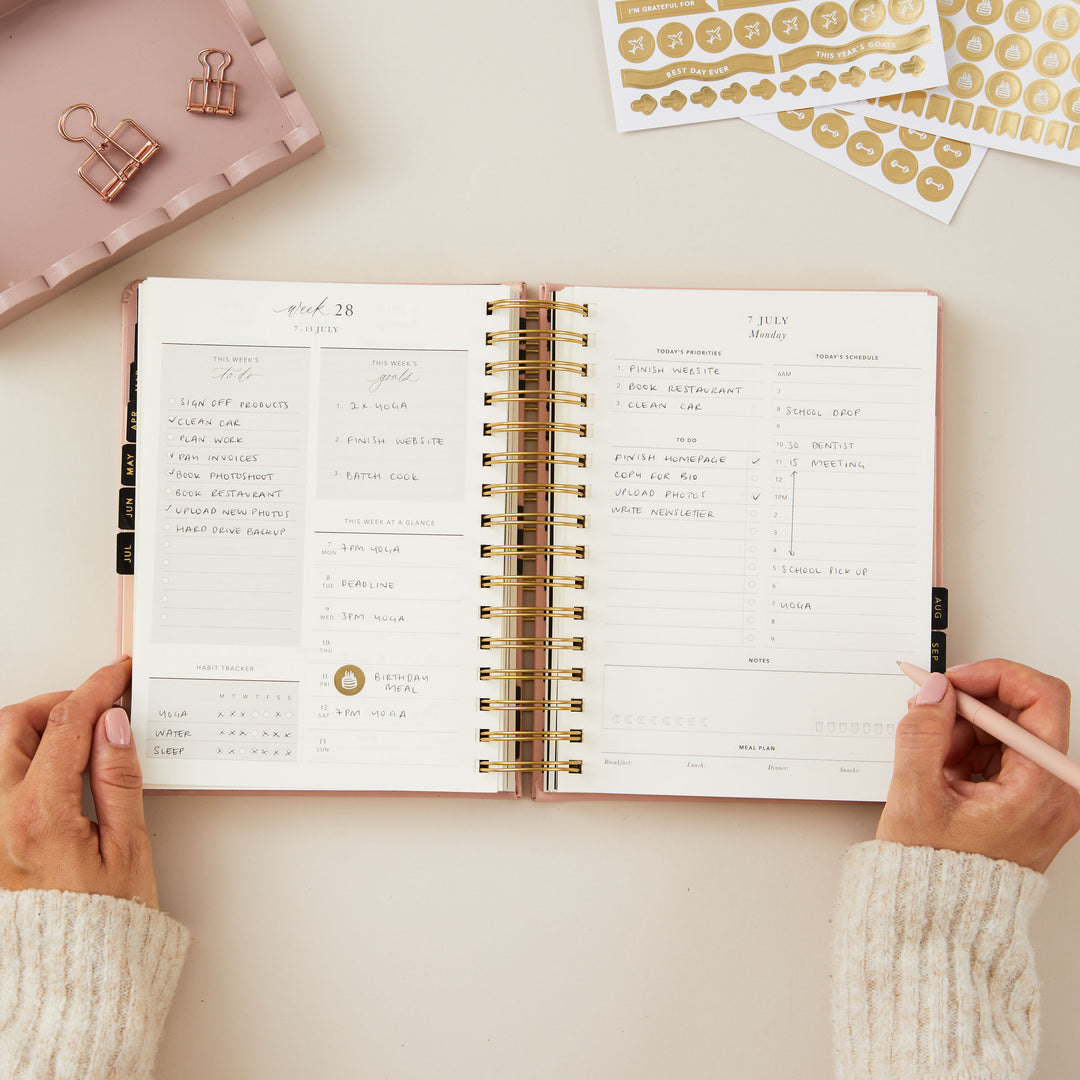 I'M GRATEFUL FOR
BEST DAY EVER
THIS YEAR'S GOALS
week 28
7 - 13 JULY
THIS WEEK'S
to do
SIGN OFF PRODUCTS
CLEAN CAR
PLAN WORK
PAY INVOICES
BOOK PHOTOSHOOT
BOOK RESTAURANT
UPLOAD NEW PHOTOS
HARD DRIVE BACKUP
THIS WEEK'S
goals
1. 2 x YOGA
2. FINISH WEBSITE
3. BATCH COOK
THIS WEEK AT A GLANCE
7 MON 7PM YOGA
8 TUE DEADLINE
9 WED 3PM YOGA
10 THU
11 FRI BIRTHDAY
MEAL
12 SAT 7PM YOGA
13 SUN
HABIT TRACKER
M T W T F S S
YOGA x x x x
WATER x x x x x x
SLEEP x x x x x x
APR
MAY
JUN
JUL
7 JULY
Monday
TODAY'S PRIORITIES
1. FINISH WEBSITE
2. BOOK RESTAURANT
3. CLEAN CAR
TO DO
FINISH HOMEPAGE
COPY FOR BIO
UPLOAD PHOTOS
WRITE NEWSLETTER
TODAY'S SCHEDULE
6AM
7
8 SCHOOL DROP
9
10 .30 DENTIST
11 .15 MEETING
12
1PM
2
3
4
5 SCHOOL PICK UP
6
7 YOGA
8
9
NOTES
MEAL PLAN
Breakfast: Lunch: Dinner: Snacks:
AUG
SEP